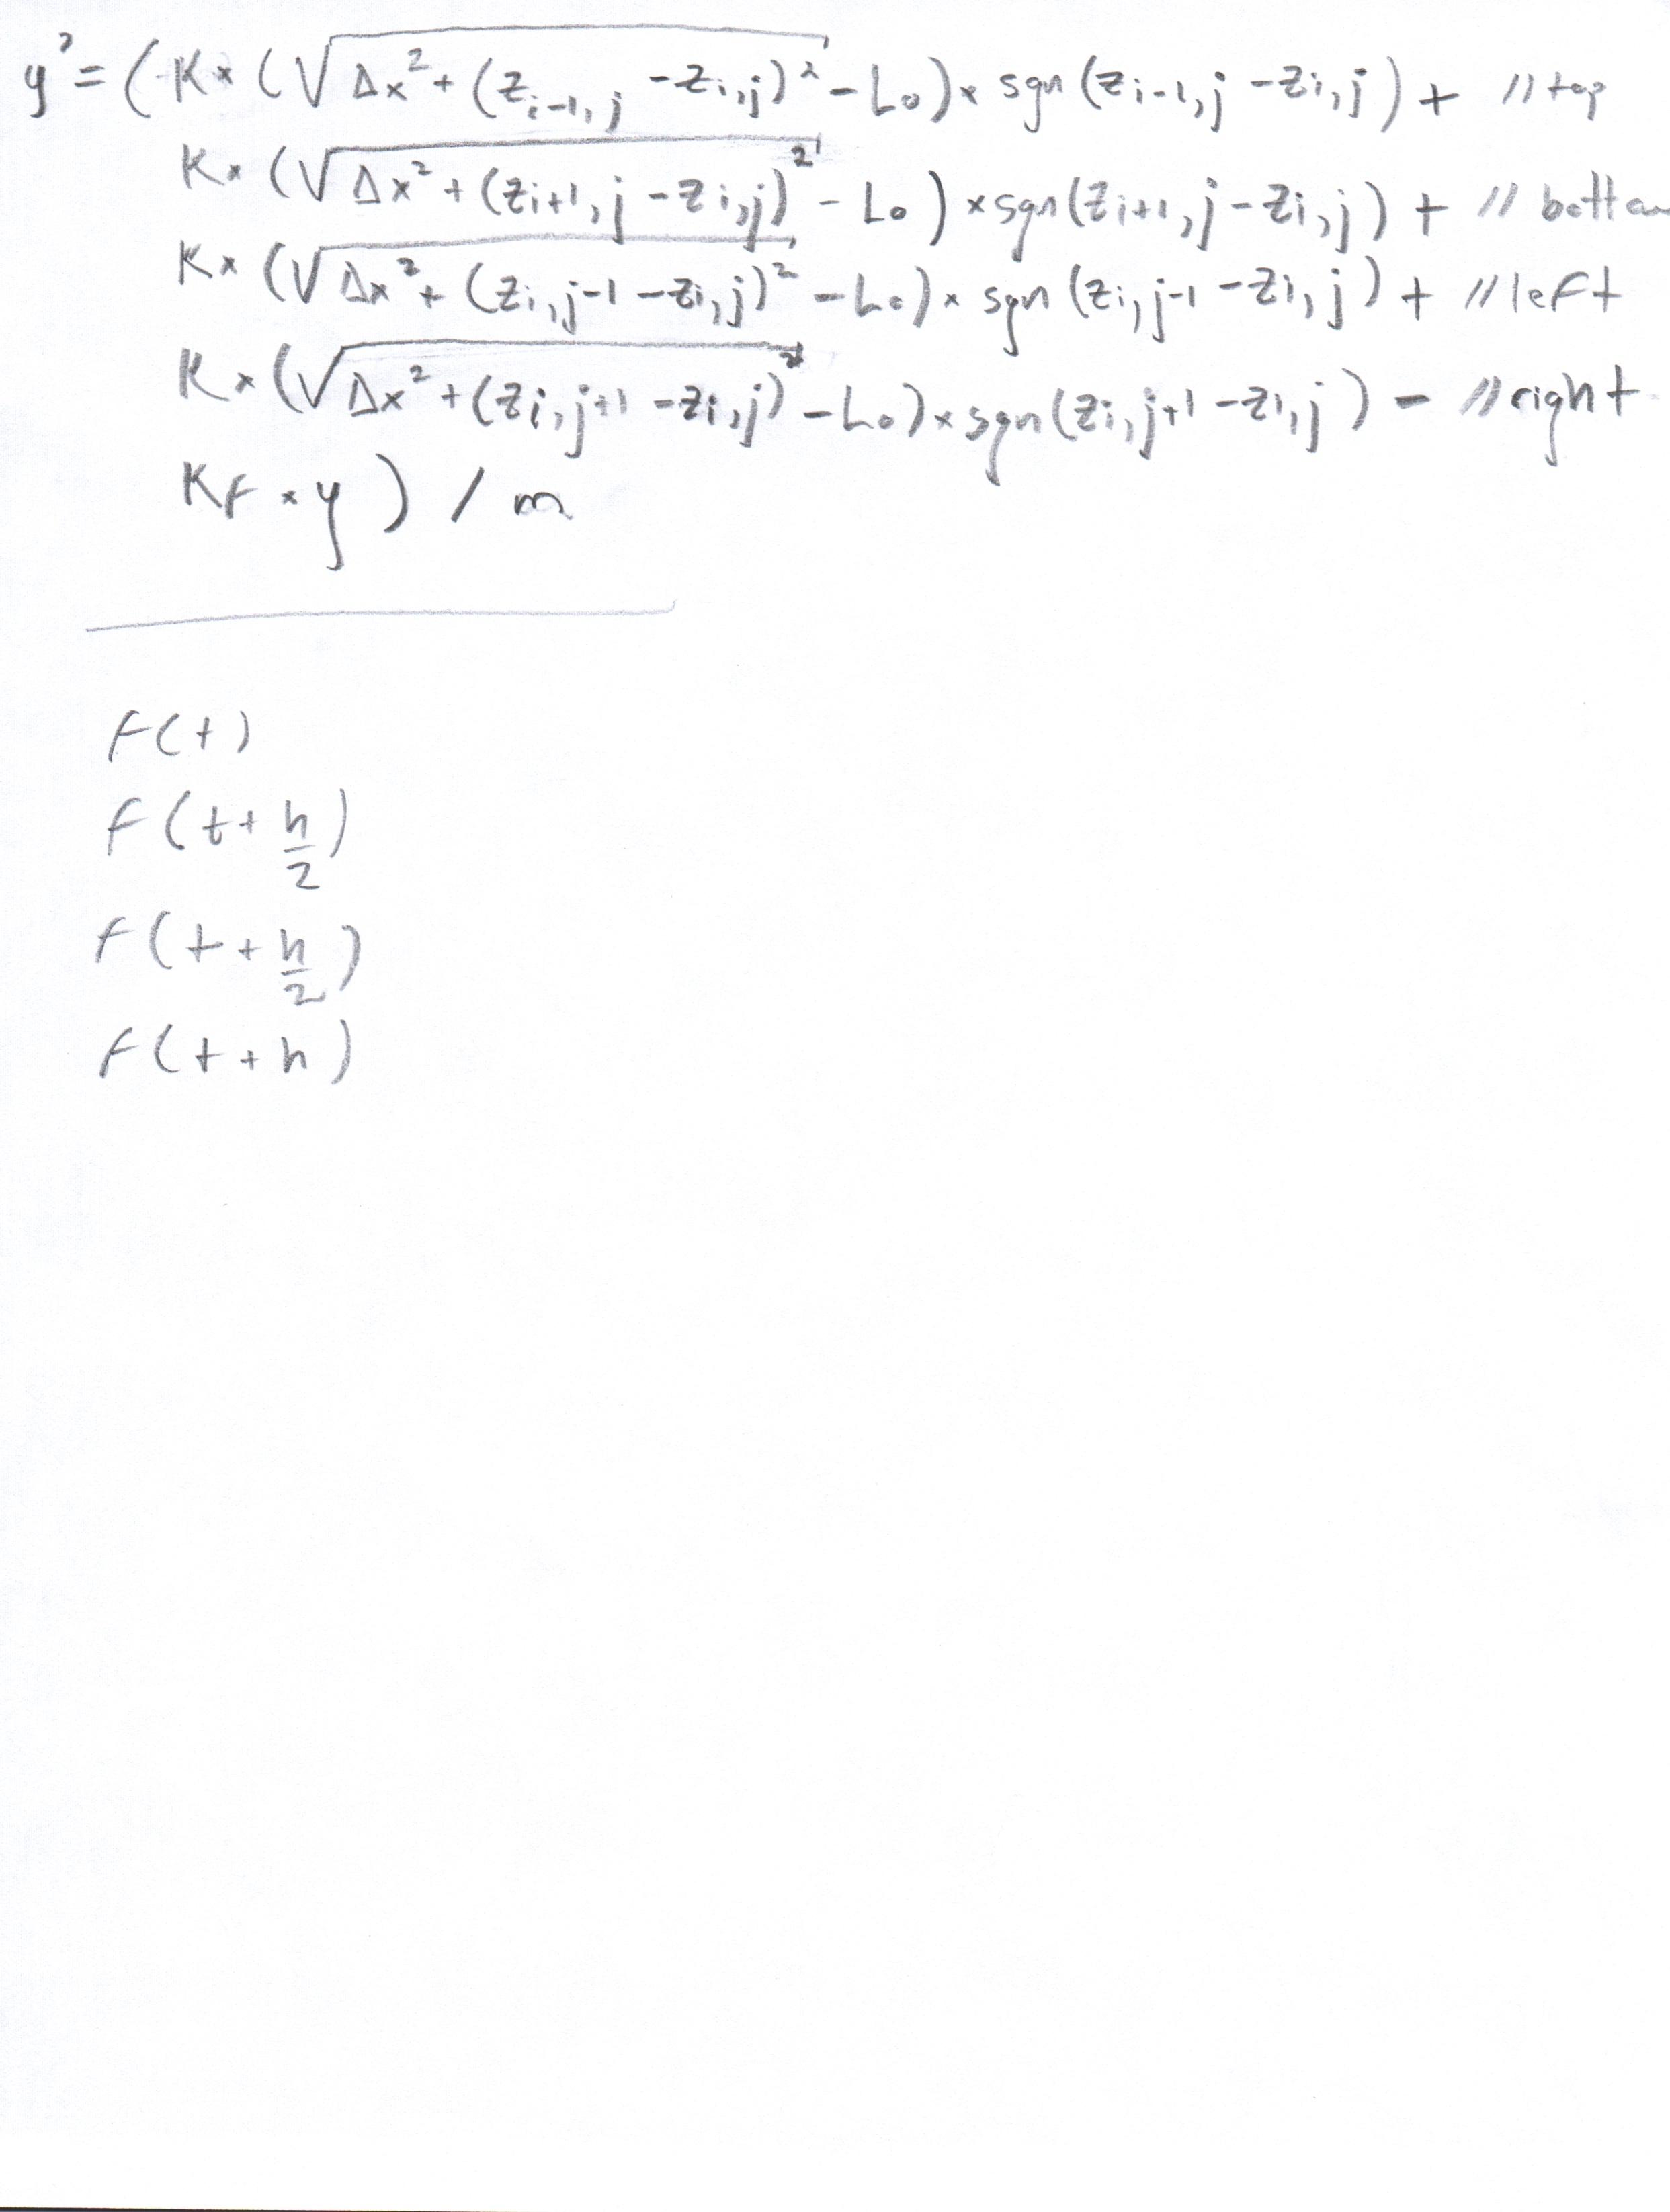 y' = (K × (√(Δx² + (z_{i-1,j} - z_{i,j})²) - L₀) × sgn(z_{i-1,j} - z_{i,j}) + // top
K × (√(Δx² + (z_{i+1,j} - z_{i,j})²) - L₀) × sgn(z_{i+1,j} - z_{i,j}) + // bottom
K × (√(Δx² + (z_{i,j-1} - z_{i,j})²) - L₀) × sgn(z_{i,j-1} - z_{i,j}) + // left
K × (√(Δx² + (z_{i,j+1} - z_{i,j})²) - L₀) × sgn(z_{i,j+1} - z_{i,j}) - // right
K_F × y) / m
F(t)
F(t + h/2)
F(t + h/2)
F(t + h)